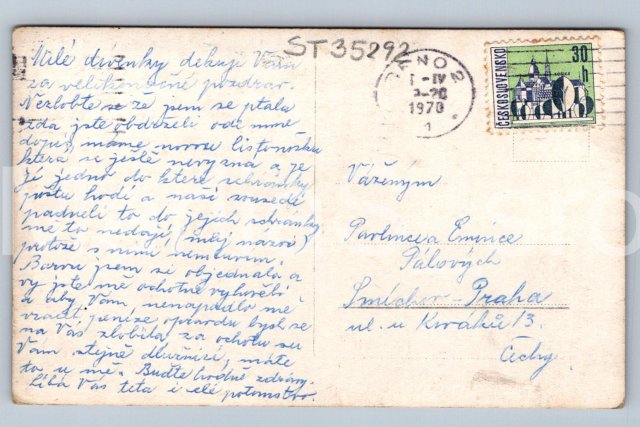 Milé divenky děkuji Vám
za velikonoční pozdrav.
Nezlobte se že jsem se ptala
zda jste obdržely ode mne
dopis, máme novou listonošku
která se ještě nevyzná a je
jí jedno do které schránky
poštu hodí a naší sousedé
padneli to do jejich schránky
mě to nedají, (můj názor)
protože s nimi nemluvím.
Barvu jsem si objednala a
vy jste mě ochotně vyhověli
a aby Vám nenapadlo mě
vracet peníze opravdu bych se
na Vás zlobila, za ochotu su
Vám stejně dlužnicí, máte
to u mě. Buďte hodně zdrávy.
Líbá Vás teta i celé potomstvo.
ST35292
ZNO 2
1-IV
-20
1970
1
ČESKOSLOVENSKO
30
h
Váženým
Pavlince a Emince
Pálových
Smíchov-Praha
ul. u 13.
Čechy